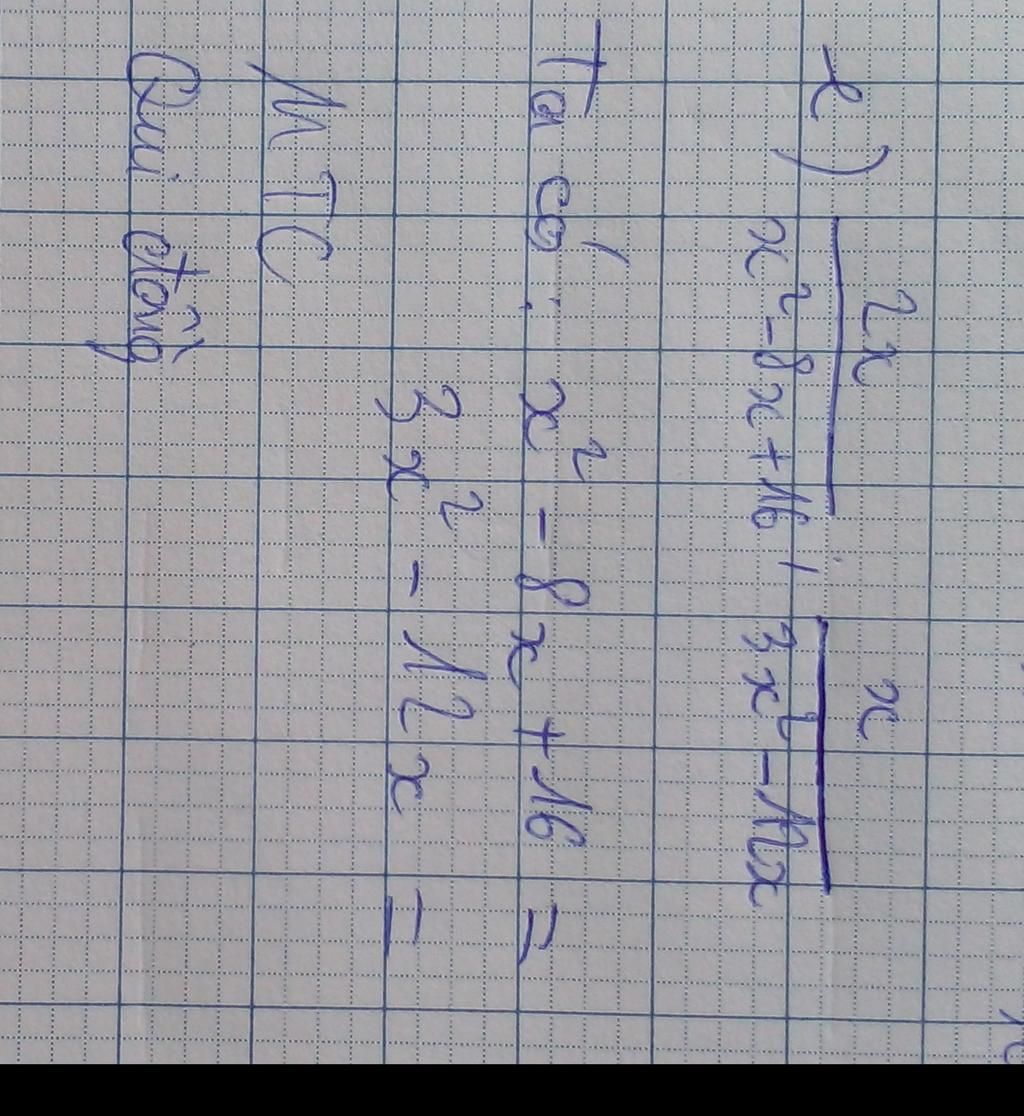 e) 2x / x² - 8x + 16 ; x / 3x² - 12x
Ta có : x² - 8x + 16 =
3x² - 12x =
MTC
Qui đồng